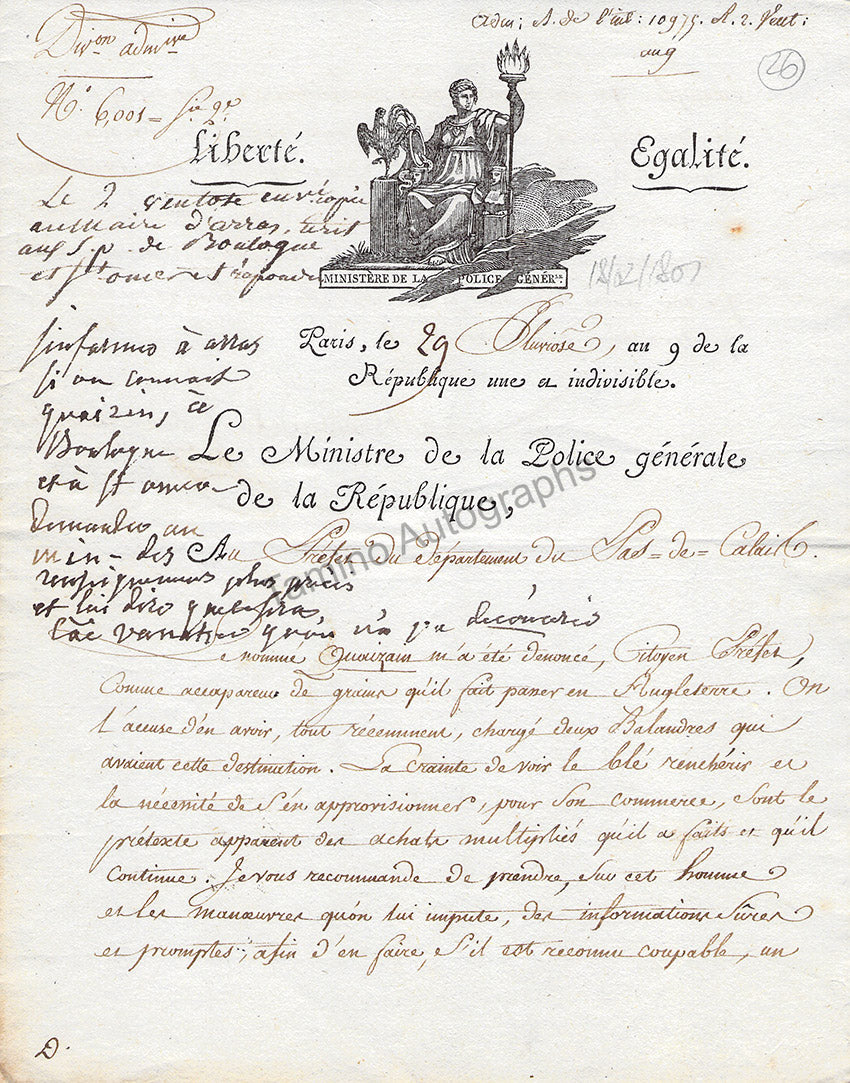 Div.on adm.ive
Adm; A. de l'int: 10975. A. 2. Vent:
an 9
26
N.o 6,001 = S.ie 2.e
Liberté.
Egalité.
Le 2 ventose envoyé copie
au maire d'arras, écrit
aux S.p de Boulogne
et St omer et répondu
MINISTÈRE DE LA POLICE GÉNÉR.le
18/02/1801
Paris, le 29 Pluviose, an 9 de la
République une et indivisible.
s'informer à arras
si on connait
quaizin, à
Boulogne
et à St omer
demander au
min- des
renseignemens plus précis
et lui dire
qu'on n'a pu découvrir
Le Ministre de la Police générale
de la République,
Au Préfet du département du Pas=de=Calais.
Tamino Autographs
Le nommé Quaizain m'a été dénoncé, Citoyen Préfet,
Comme accapareur de grains qu'il fait passer en Angleterre. On
l'accuse d'en avoir, tout récemment, chargé deux Balandres qui
avaient cette destination. La crainte de voir le blé renchérir et
la nécessité de s'en approvisionner, pour son commerce, sont le
prétexte apparent des achats multipliés qu'il a faits et qu'il
Continue. Je vous recommande de prendre, sur cet homme
et les manœuvres qu'on lui impute, des informations sûres
et promptes; afin d'en faire, s'il est reconnu coupable, un
D.